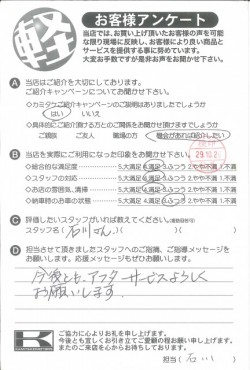 軽
お客様アンケート
当店では、お買い上げ頂いたお客様の声を可能
な限り現場に反映し、お客様により良い商品と
サービスを提供する事に努めています。
大変お手数ですが是非お声をお聞かせ下さい。
A 当店はご紹介を大切にしております。
ご紹介キャンペーンについてお聞かせ下さい。
◇カミタケご紹介キャンペーンのご説明はありましたでしょうか
はい いいえ
◇具体的にご紹介頂ける方とのご関係をお聞かせ頂けますでしょうか
ご親族 ご友人 職場の方 機会があれば紹介したい
B 当店を実際にご利用になった印象をお聞かせ下さい。
◇総合的な満足度 5.大満足 4.満足 3.ふつう 2.やや不満 1.不満
◇スタッフの対応 5.大満足 4.満足 3.ふつう 2.やや不満 1.不満
◇お店の雰囲気、清掃 5.大満足 4.満足 3.ふつう 2.やや不満 1.不満
◇納車時のお車の状態 5.大満足 4.満足 3.ふつう 2.やや不満 1.不満
C 評価したいスタッフがいれば教えてください。
スタッフ名( 石川さん )
D 担当させて頂きましたスタッフへのご指摘、ご指導メッセージを
お願いします。応援メッセージもぜひお願いします。
今後とも、アフターサービスよろしく
お願いします。
K
ご協力に心よりお礼を申し上げます。
今後とも宜しくお引き立てご愛顧の程お願い申し上げます。
またのご来店を心からお待ちしております。
担当( 石川 )